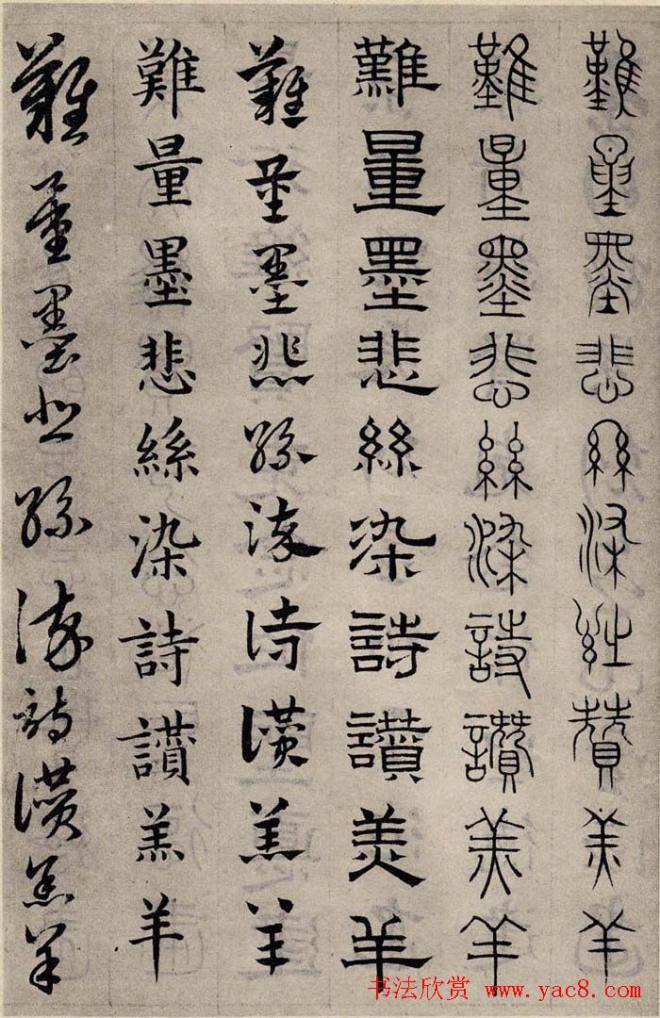 難量墨悲絲染詩讃羔羊
難量墨悲絲染詩讃羔羊
難量墨悲絲染詩讃羔羊
難量墨悲絲染詩讃羔羊
難量墨悲絲染詩讃羔羊
難量墨悲絲染詩讃羔羊
书法欣赏 www.yac8.com